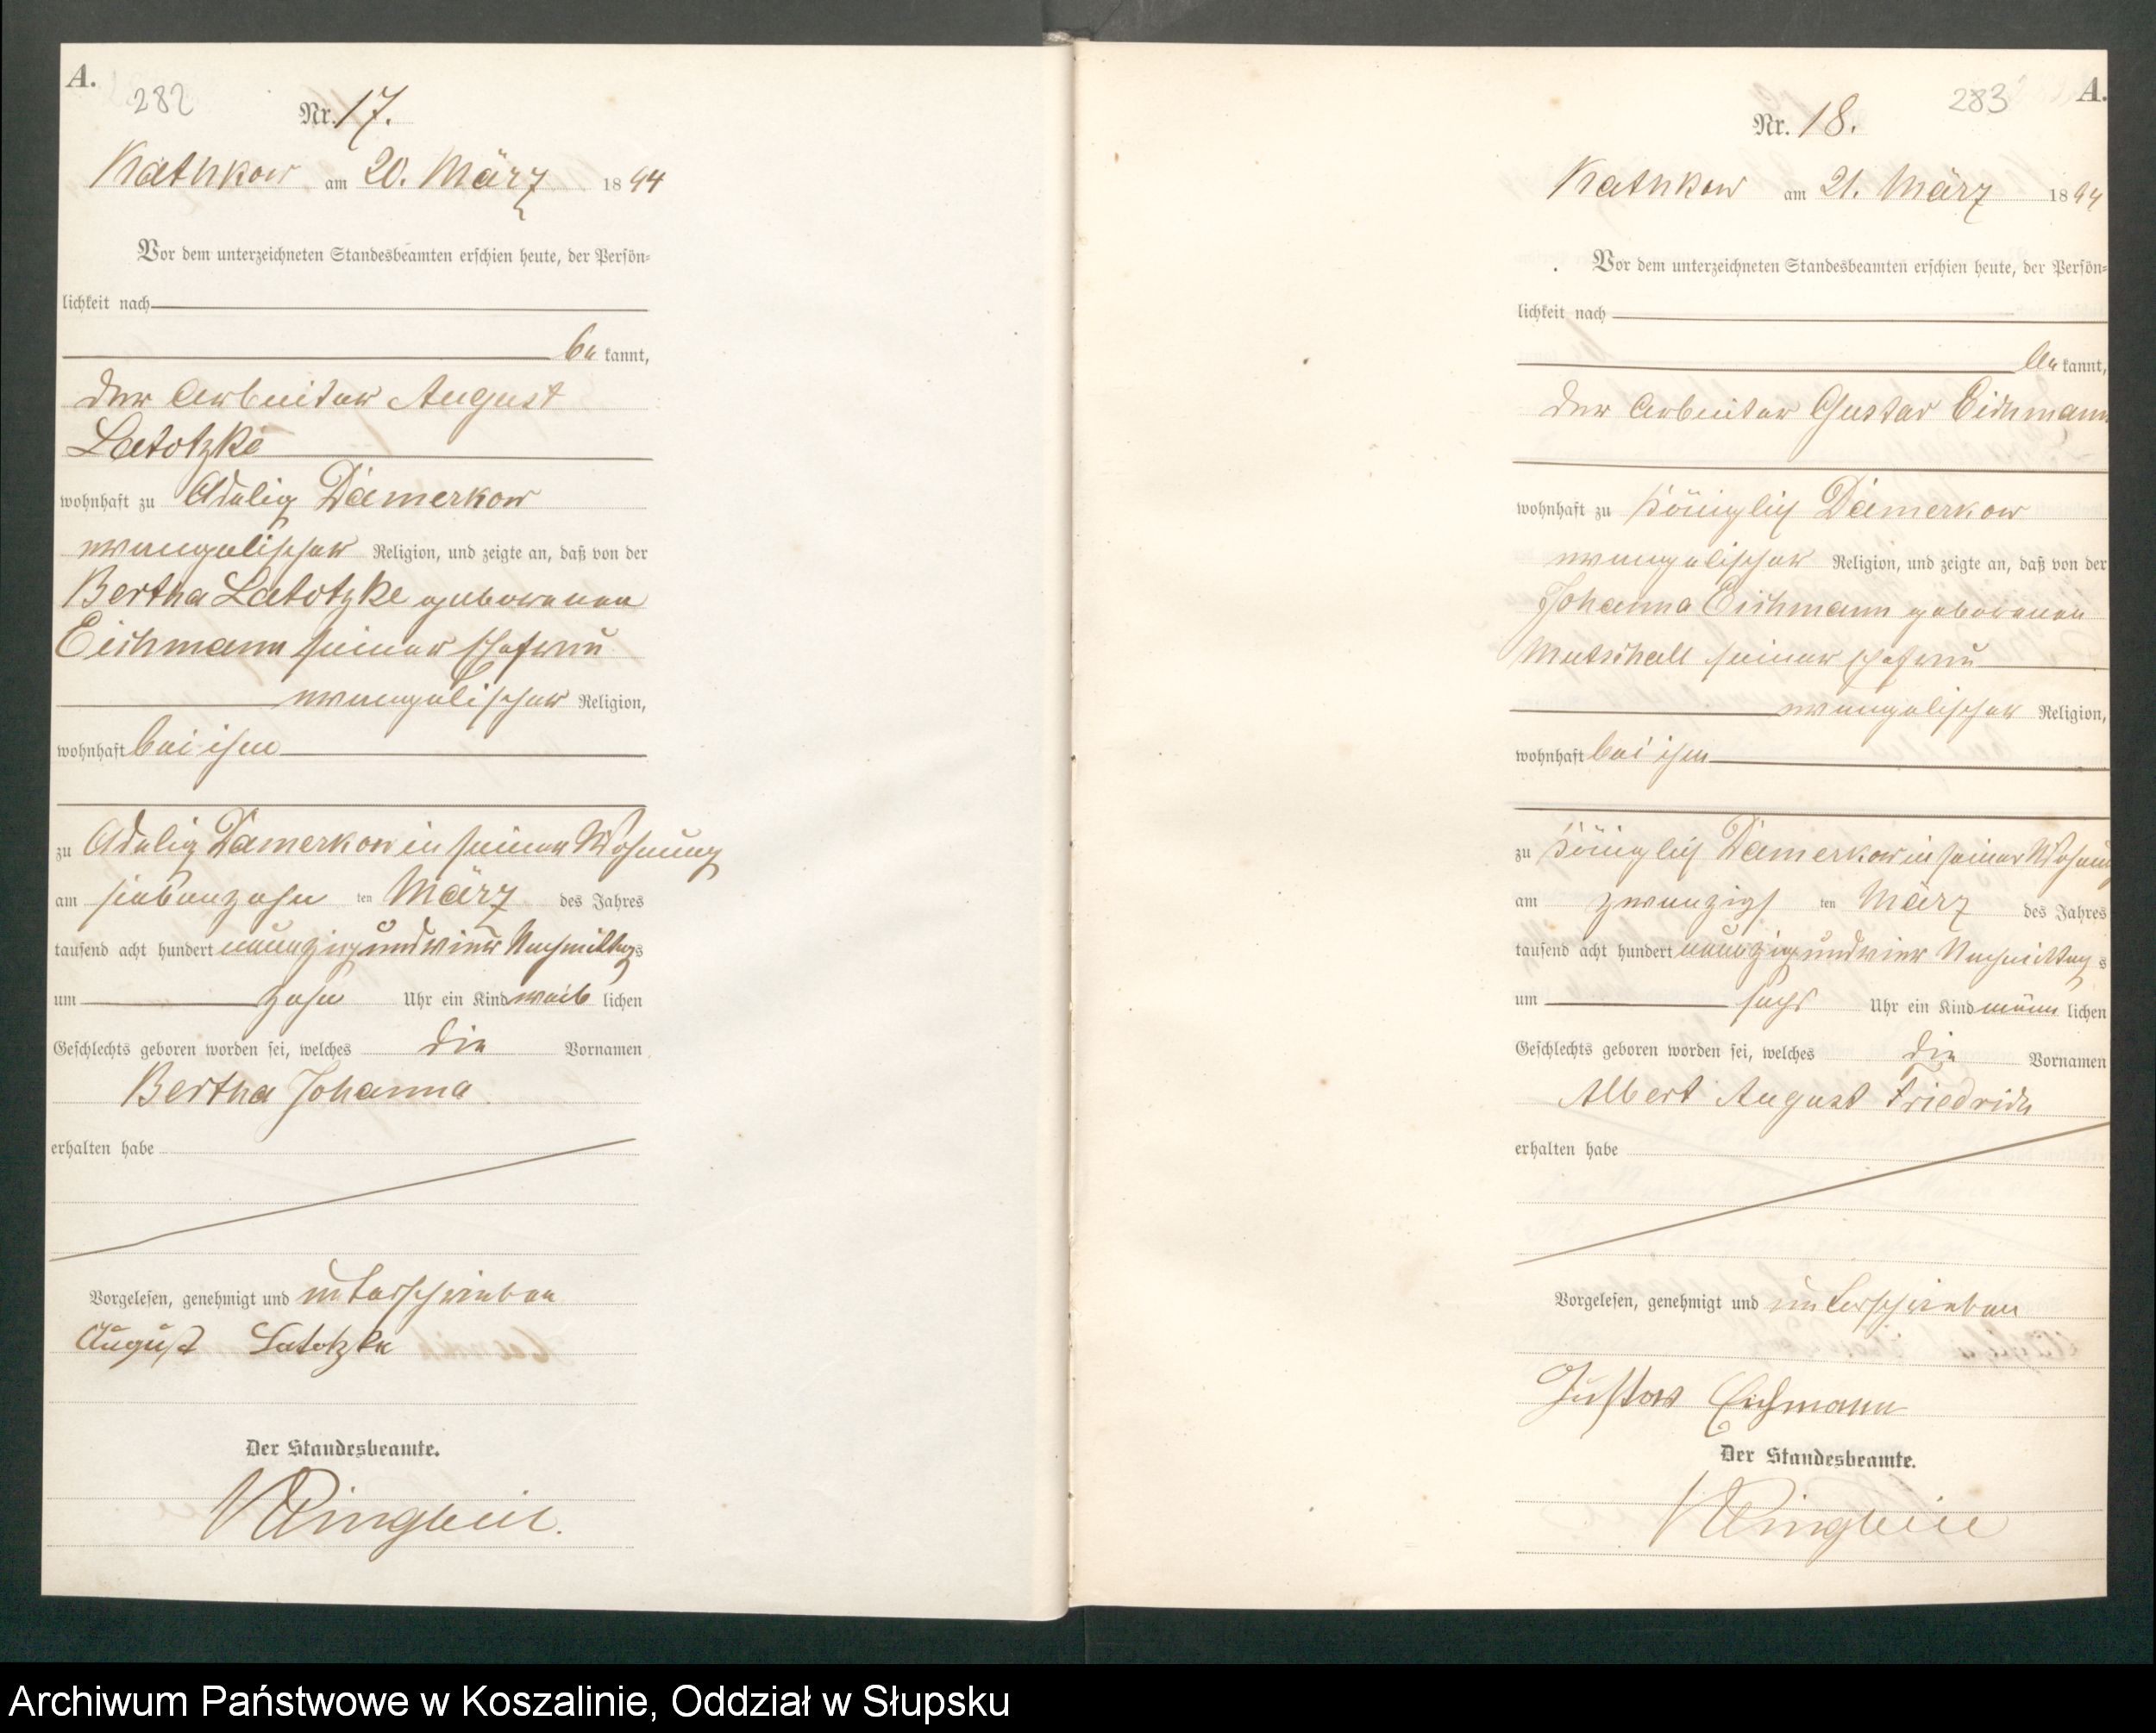 A.
282
Nr. 17.
Kathkow am 20. März 1894
Vor dem unterzeichneten Standesbeamten erschien heute, der Persön-
lichkeit nach
be kannt,
der Arbeiter August
Latotzke
wohnhaft zu Adelig Damerkow
evangelischer Religion, und zeigte an, daß von der
Bertha Latotzke geborenen
Eichmann seiner Ehefrau
evangelischer Religion,
wohnhaft bei ihm
zu Adelig Damerkow in seiner Wohnung
am siebenzehn ten März des Jahres
tausend acht hundert neunzig und vier Nachmittags
um zehn Uhr ein Kind weib lichen
Geschlechts geboren worden sei, welches die Vornamen
Bertha Johanna
erhalten habe
Vorgelesen, genehmigt und unterschrieben
August Latotzke
Der Standesbeamte.
283
A.
Nr. 18.
Kathkow am 21. März 1894
Vor dem unterzeichneten Standesbeamten erschien heute, der Persön-
lichkeit nach
be kannt,
der Arbeiter Gustav Eichmann
wohnhaft zu Königlich Damerkow
evangelischer Religion, und zeigte an, daß von der
Johanna Eichmann geborenen
Mutschall seiner Ehefrau
evangelischer Religion,
wohnhaft bei ihm
zu Königlich Damerkow in seiner Wohnung
am zwanzigs ten März des Jahres
tausend acht hundert neunzig und vier Nachmittags
um sechs Uhr ein Kind männ lichen
Geschlechts geboren worden sei, welches die Vornamen
Albert August Friedrich
erhalten habe
Vorgelesen, genehmigt und unterschrieben
Gustav Eichmann
Der Standesbeamte.
Archiwum Państwowe w Koszalinie, Oddział w Słupsku